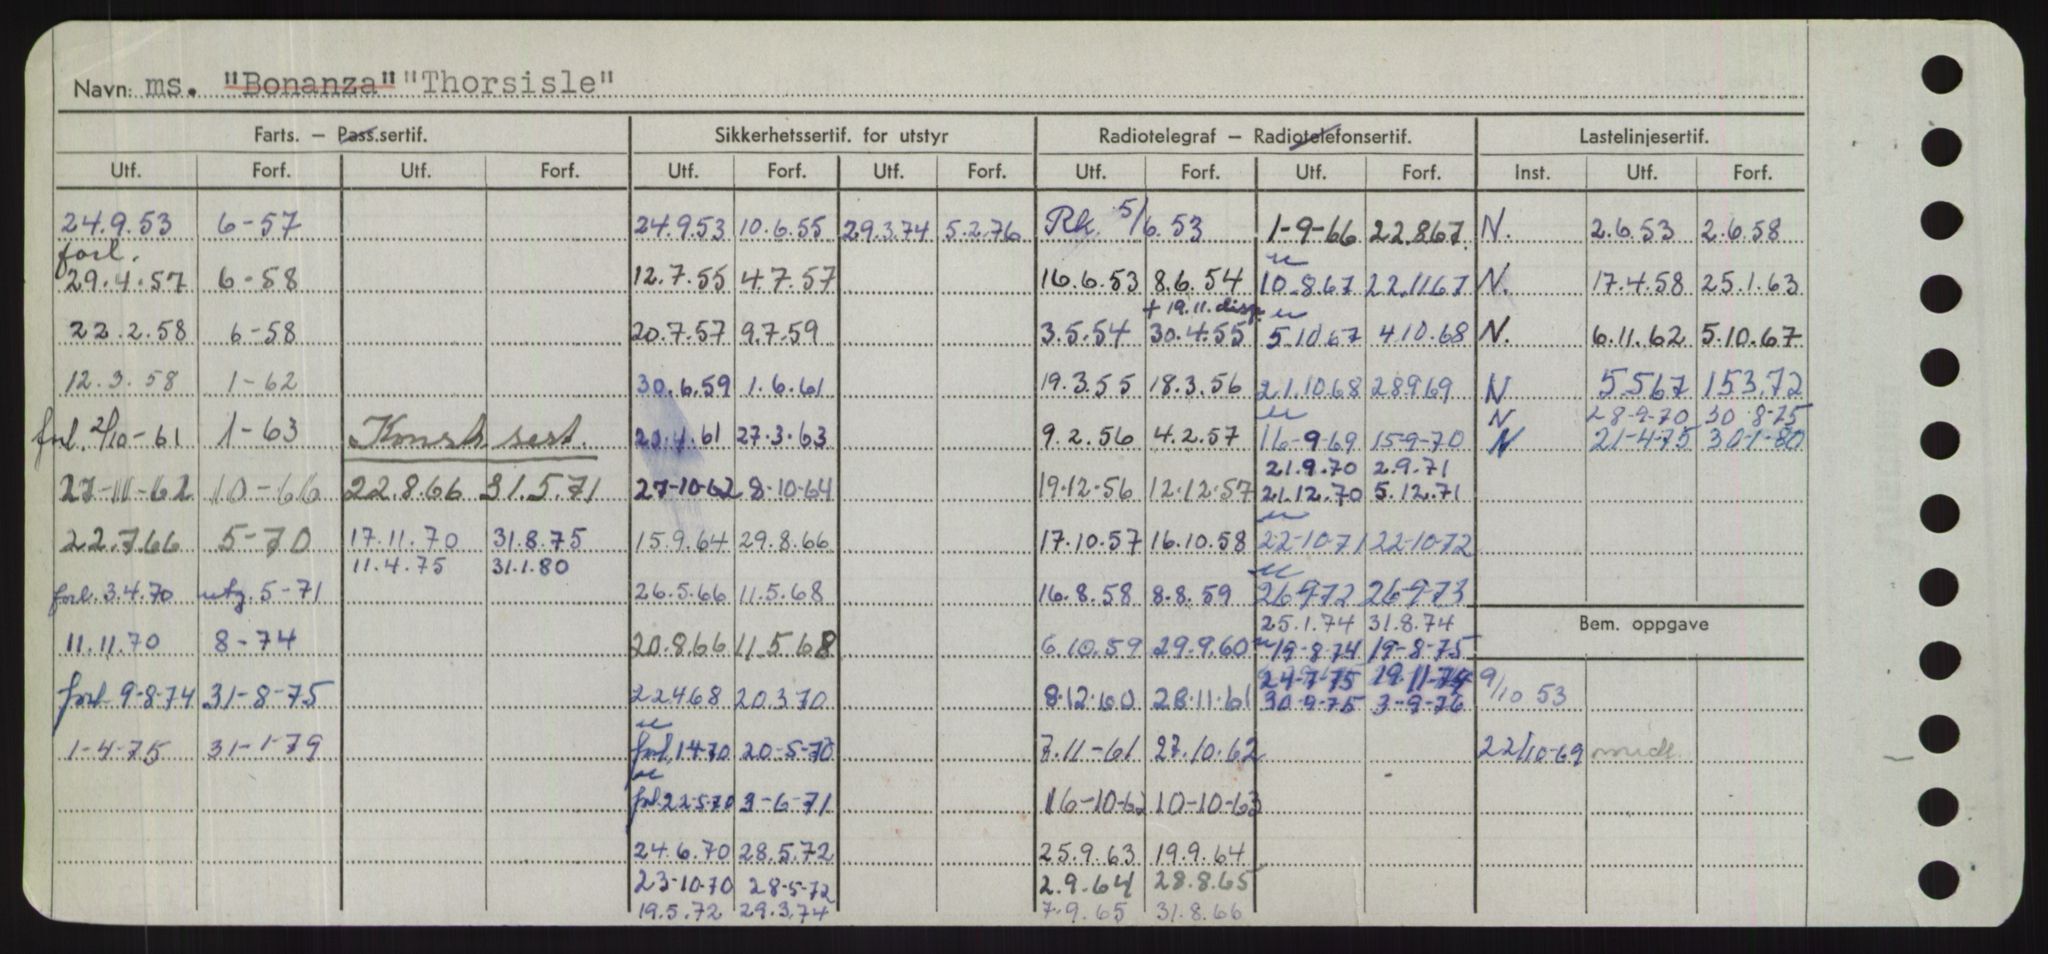 Navn: ms. "Bonanza" "Thorsisle"
Farts. — Pass.sertif. Sikkerhetssertif. for utstyr Radiotelegraf — Radiotelefonsertif. Lastelinjesertif.
Utf. Forf. Utf. Forf. Utf. Forf. Utf. Forf. Utf. Forf. Utf. Forf. Inst. Utf. Forf.
24.9.53 6-57 24.9.53 10.6.55 29.3.74 5.2.76 Rk. 5/6.53 1-9-66 22.8.67 N. 2.6.53 2.6.58
forl.
29.4.57 6-58 12.7.55 4.7.57 16.6.53 8.6.54 10.8.67 22.11.67 N. 17.4.58 25.1.63
+ 19.11. disp.
22.2.58 6-58 20.7.57 9.7.59 3.5.54 30.4.55 5.10.67 4.10.68 N. 6.11.62 5.10.67
12.3.58 1-62 30.6.59 1.6.61 19.3.55 18.3.56 21.10.68 28969 N 5567 153.72
N 28-9-70 30-8-75
forl. 2/10-61 1-63 Konstr. sert. 61 27.3.63 9.2.56 4.2.57 16-9-69 15-9-70 N 21-4-75 30-1-80
21.9.70 2.9.71
27-11-62 10-66 22.8.66 31.5.71 27-10-62 8-10-64 19.12.56 12.12.57 21.12.70 5.12.71
22.7.66 5-70 17.11.70 31.8.75 15.9.64 29.8.66 17.10.57 16.10.58 22-10-71 22-10-72
11.4.75 31.1.80
forl. 3.4.70 utg. 5-71 26.5.66 11.5.68 16.8.58 8.8.59 26-9-72 26-9-73
25.1.74 31.8.74 Bem. oppgave
11.11.70 8-74 20.8.66 11.5.68 6.10.59 29.9.60 19-8-74 19-8-75
24-7-75 19.11-75
forl. 9-8-74 31-8-75 22468 20.3.70 8.12.60 28.11.61 30-9-75 3-9-76 9/10 53
1-4-75 31-1-79 forl. 1470 20-5-70 7.11-61 27.10.62 22/10-69 midl
forl. 22-5-70 3-6-71 16-10-62 10-10-63
24.6.70 28.5.72 25.9.63 19.9.64
23-10-70 28-5-72 2.9.64 28.8.65
19.5.72 29.3.74 7.9.65 31.8.66